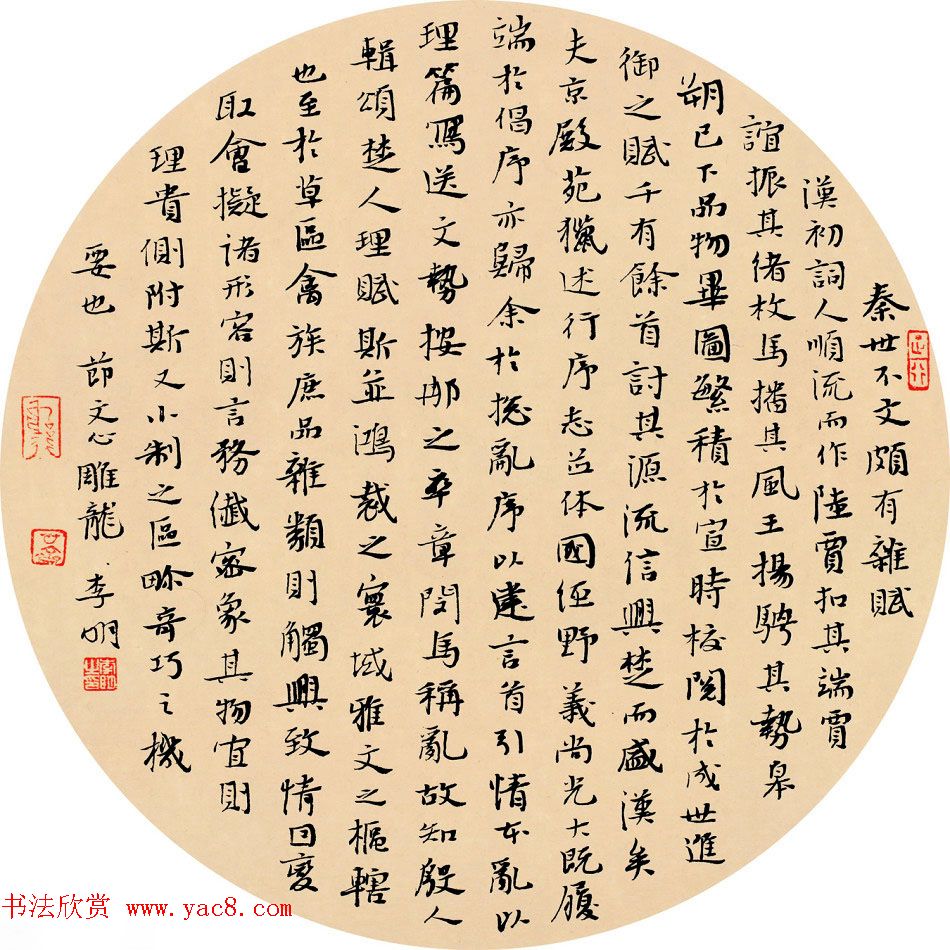 秦世不文頗有雜賦
漢初詞人順流而作陸賈扣其端賈
誼振其绪枚馬播其風王揚騁其勢皋
朔已下品物畢圖繁積於宣時校閱於成世進
御之賦千有餘首討其源流信興楚而盛漢矣
夫京殿苑獵述行序志並体國徑野義尚光大既履
端於倡序亦歸余於揔亂序以建言首引情本亂以
理篇寫送文勢按那之卒章閔馬稱亂故知殷人
輯頌楚人理賦斯並鴻裁之寰域雅文之樞轄
也至於草區禽族庶品雜類則觸興致情回變
取會擬诸形容則言務纖密象其物宜則
理貴側附斯又小制之區畛奇巧之機
要也 節文心雕龍 李明
书法欣赏 www.yac8.com